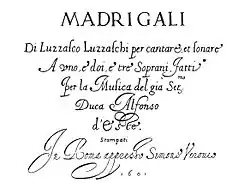 MADRIGALI
Di Luzzasco Luzzaschi per cantare, et sonare
A uno, e doi, e tre Soprani, fatti
per la Musica del gia Ser.mo
Duca Alfonso
d'Este.
Stampati
In Roma appresso Simone Verovio
1601